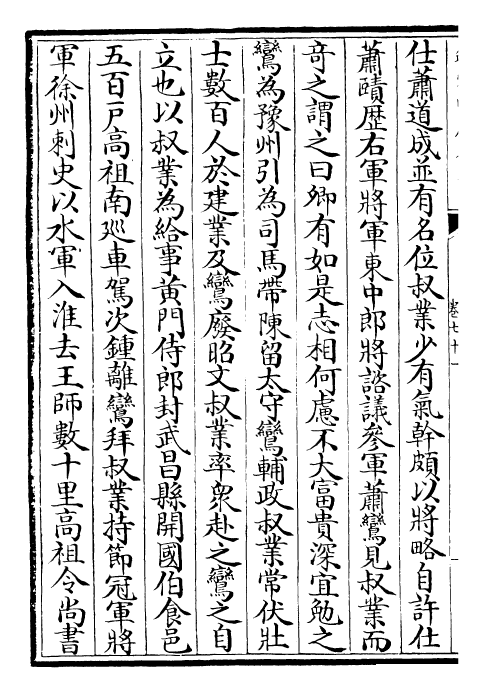 仕蕭道成並有名位叔業少有氣幹頗以將略自許仕
蕭賾歷右軍將軍東中郎將諮議參軍蕭鸞見叔業而
竒之謂之曰卿有如是志相何慮不大富貴深宜勉之
鸞為豫州引為司馬帶陳留太守鸞輔政叔業常伏壯
士數百人於建業及鸞廢昭文叔業率衆赴之鸞之自
立也以叔業為給事黃門侍郎封武昌縣開國伯食邑
五百戶高祖南廵車駕次鍾離鸞拜叔業持節冠軍將
軍徐州刺史以水軍入淮去王師數十里高祖令尚書
卷七十一